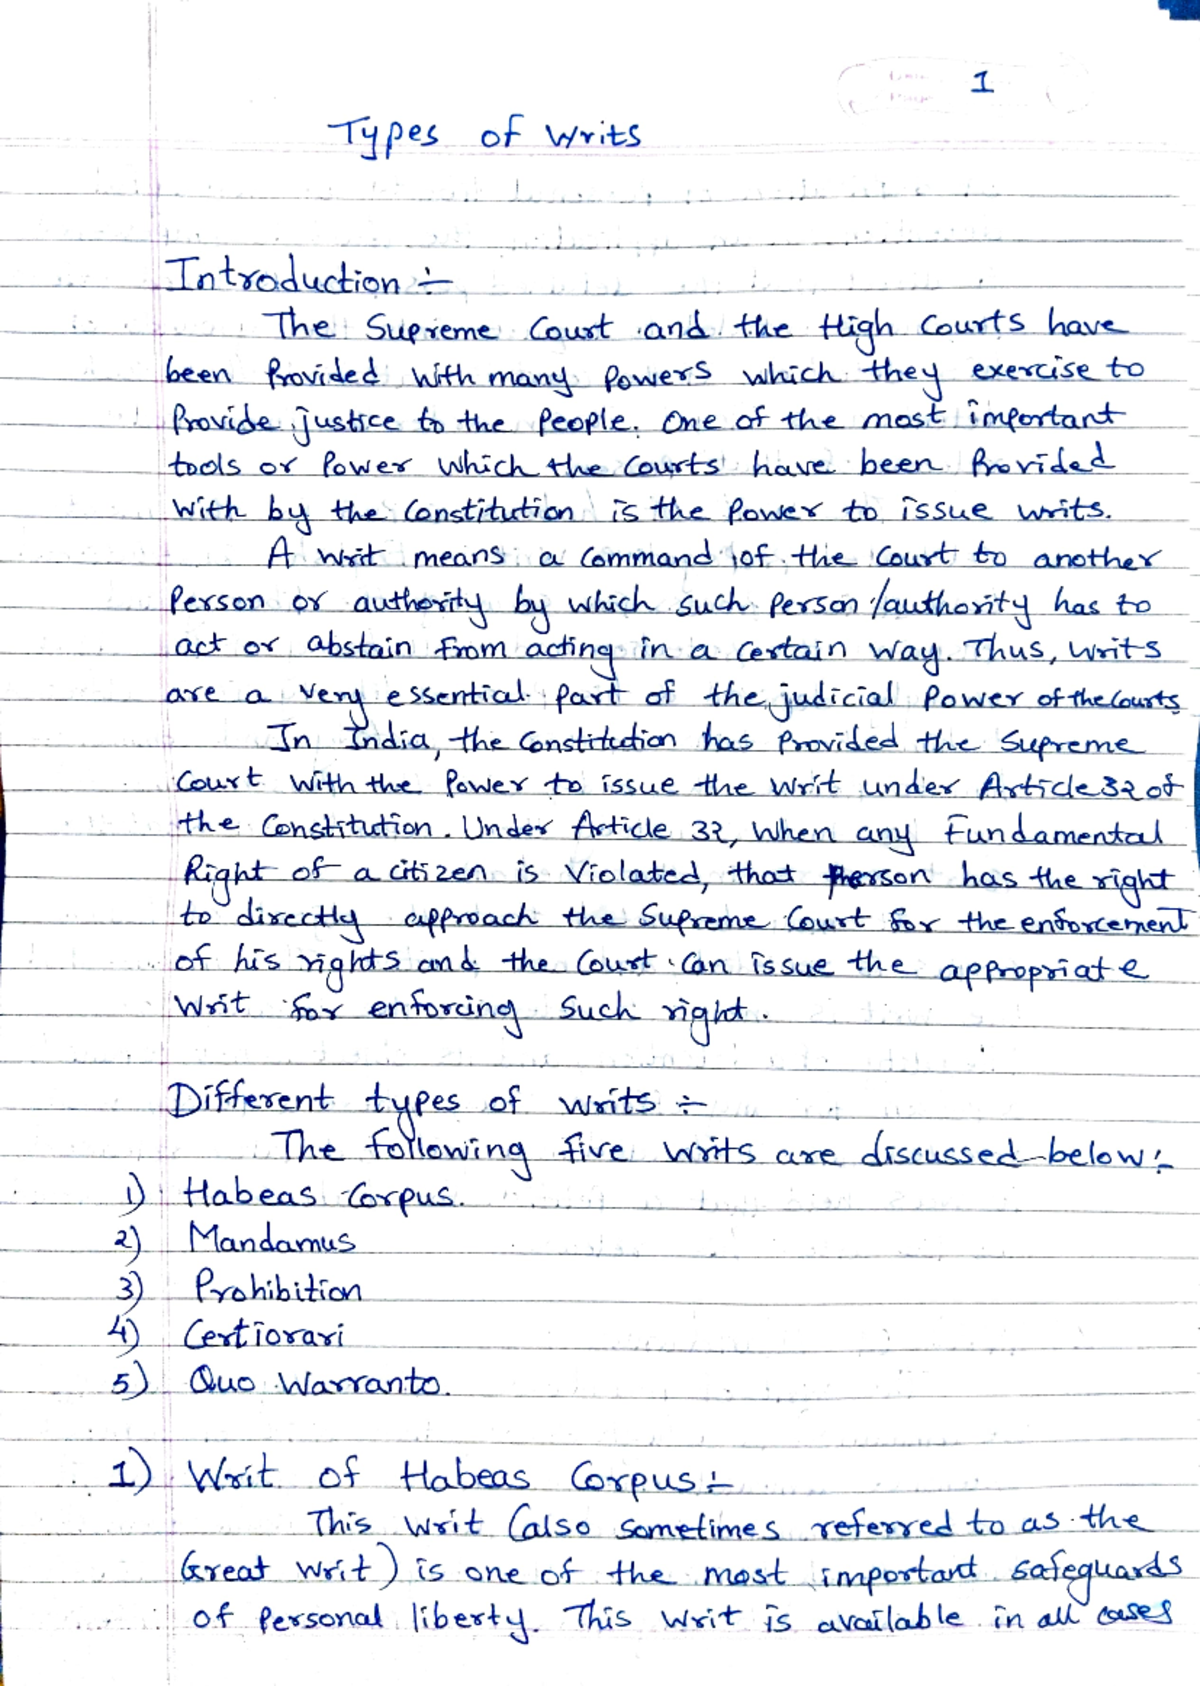 1
Types of Writs
Introduction :-
The Supreme Court and the High Courts have
been Provided with many Powers which they exercise to
Provide justice to the People. One of the most important
tools or Power which the Courts have been Provided
with by the Constitution is the Power to issue writs.
A writ means a Command of the Court to another
Person or authority by which such Person/authority has to
act or abstain from acting in a certain way. Thus, writs
are a very essential part of the judicial Power of the Courts
In India, the Constitution has Provided the Supreme
Court with the Power to issue the writ under Article 32 of
the Constitution. Under Article 32, when any Fundamental
Right of a citizen is violated, that Person has the right
to directly approach the Supreme Court for the enforcement
of his rights and the Court can issue the appropriate
writ for enforcing such right.
Different types of writs :-
The following five writs are discussed below :-
1) Habeas Corpus.
2) Mandamus
3) Prohibition
4) Certiorari
5) Quo Warranto.
1) Writ of Habeas Corpus :-
This writ (also sometimes referred to as the
Great writ) is one of the most important safeguards
of Personal liberty. This writ is available in all cases